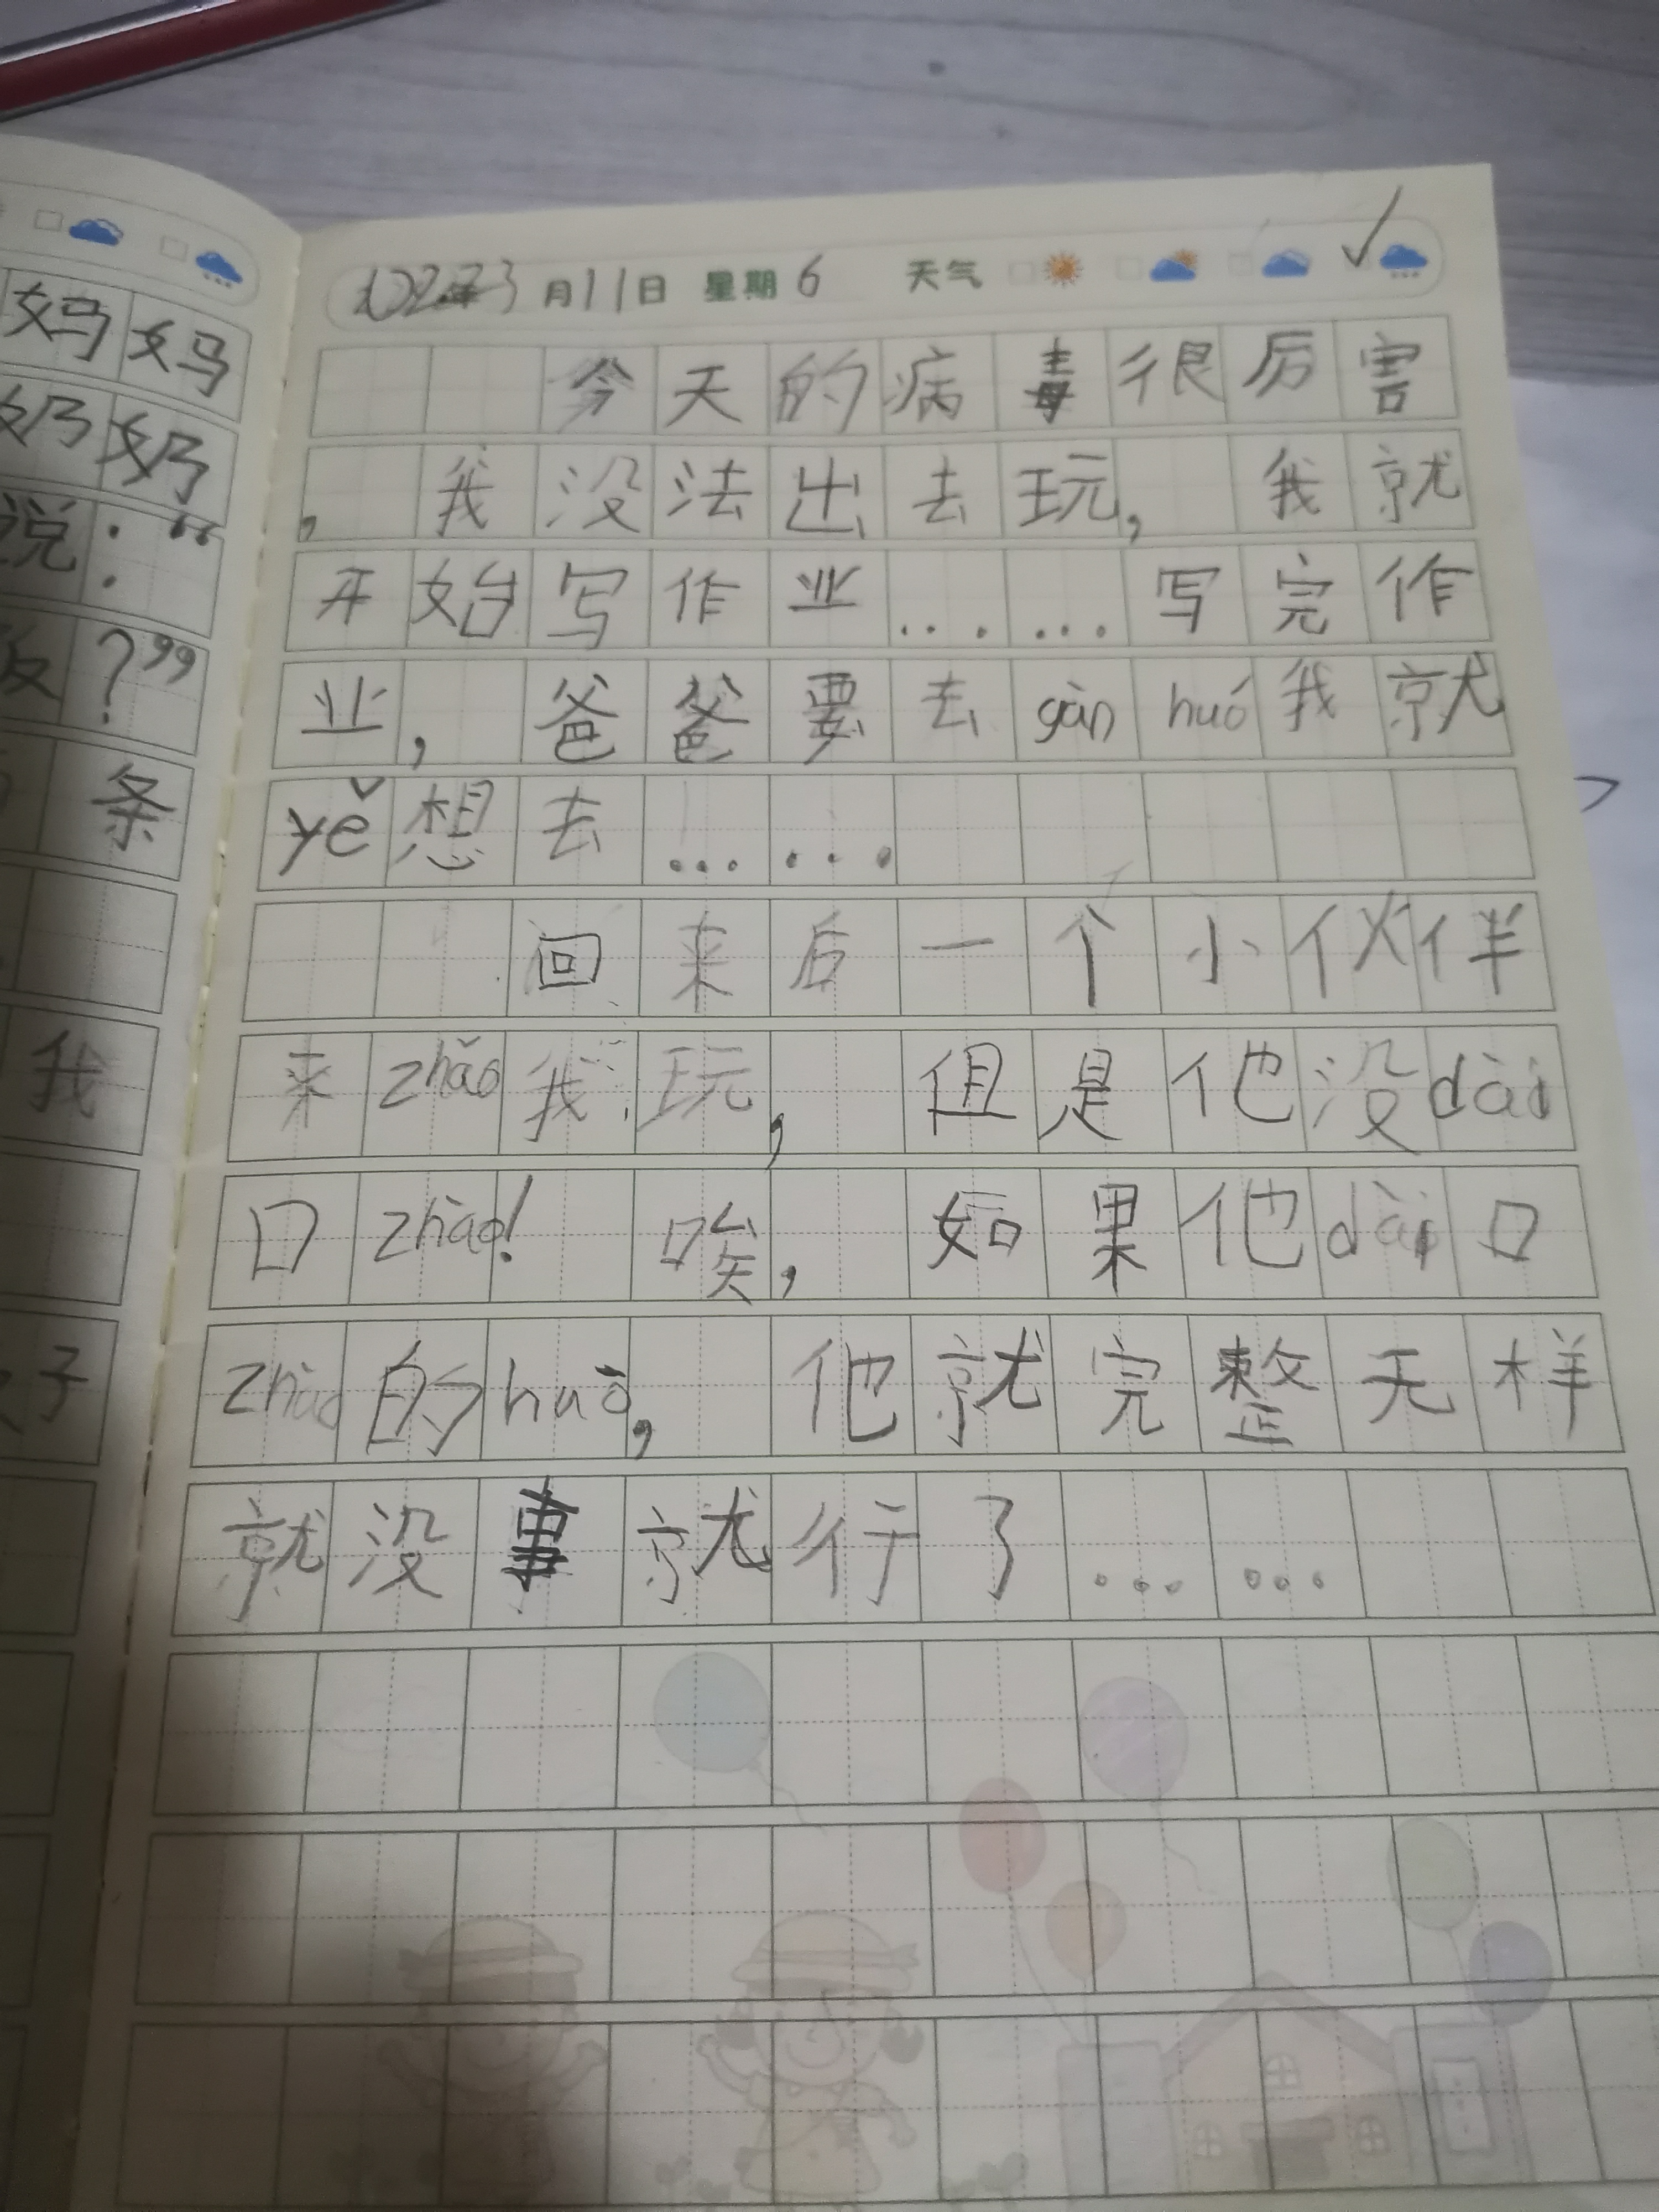 妈妈
奶奶
说：“
？”
条
我
子
月11日 星期6 天气
今天的病毒很厉害
，我没法出去玩，我就
开始写作业……写完作
业，爸爸要去gàn huó我就
yě想去……
回来后一个小伙伴
来zhǎo我玩，但是他没dài
口zhào！唉，如果他dài口
zhào的huà，他就完整无样
就没事就行了……